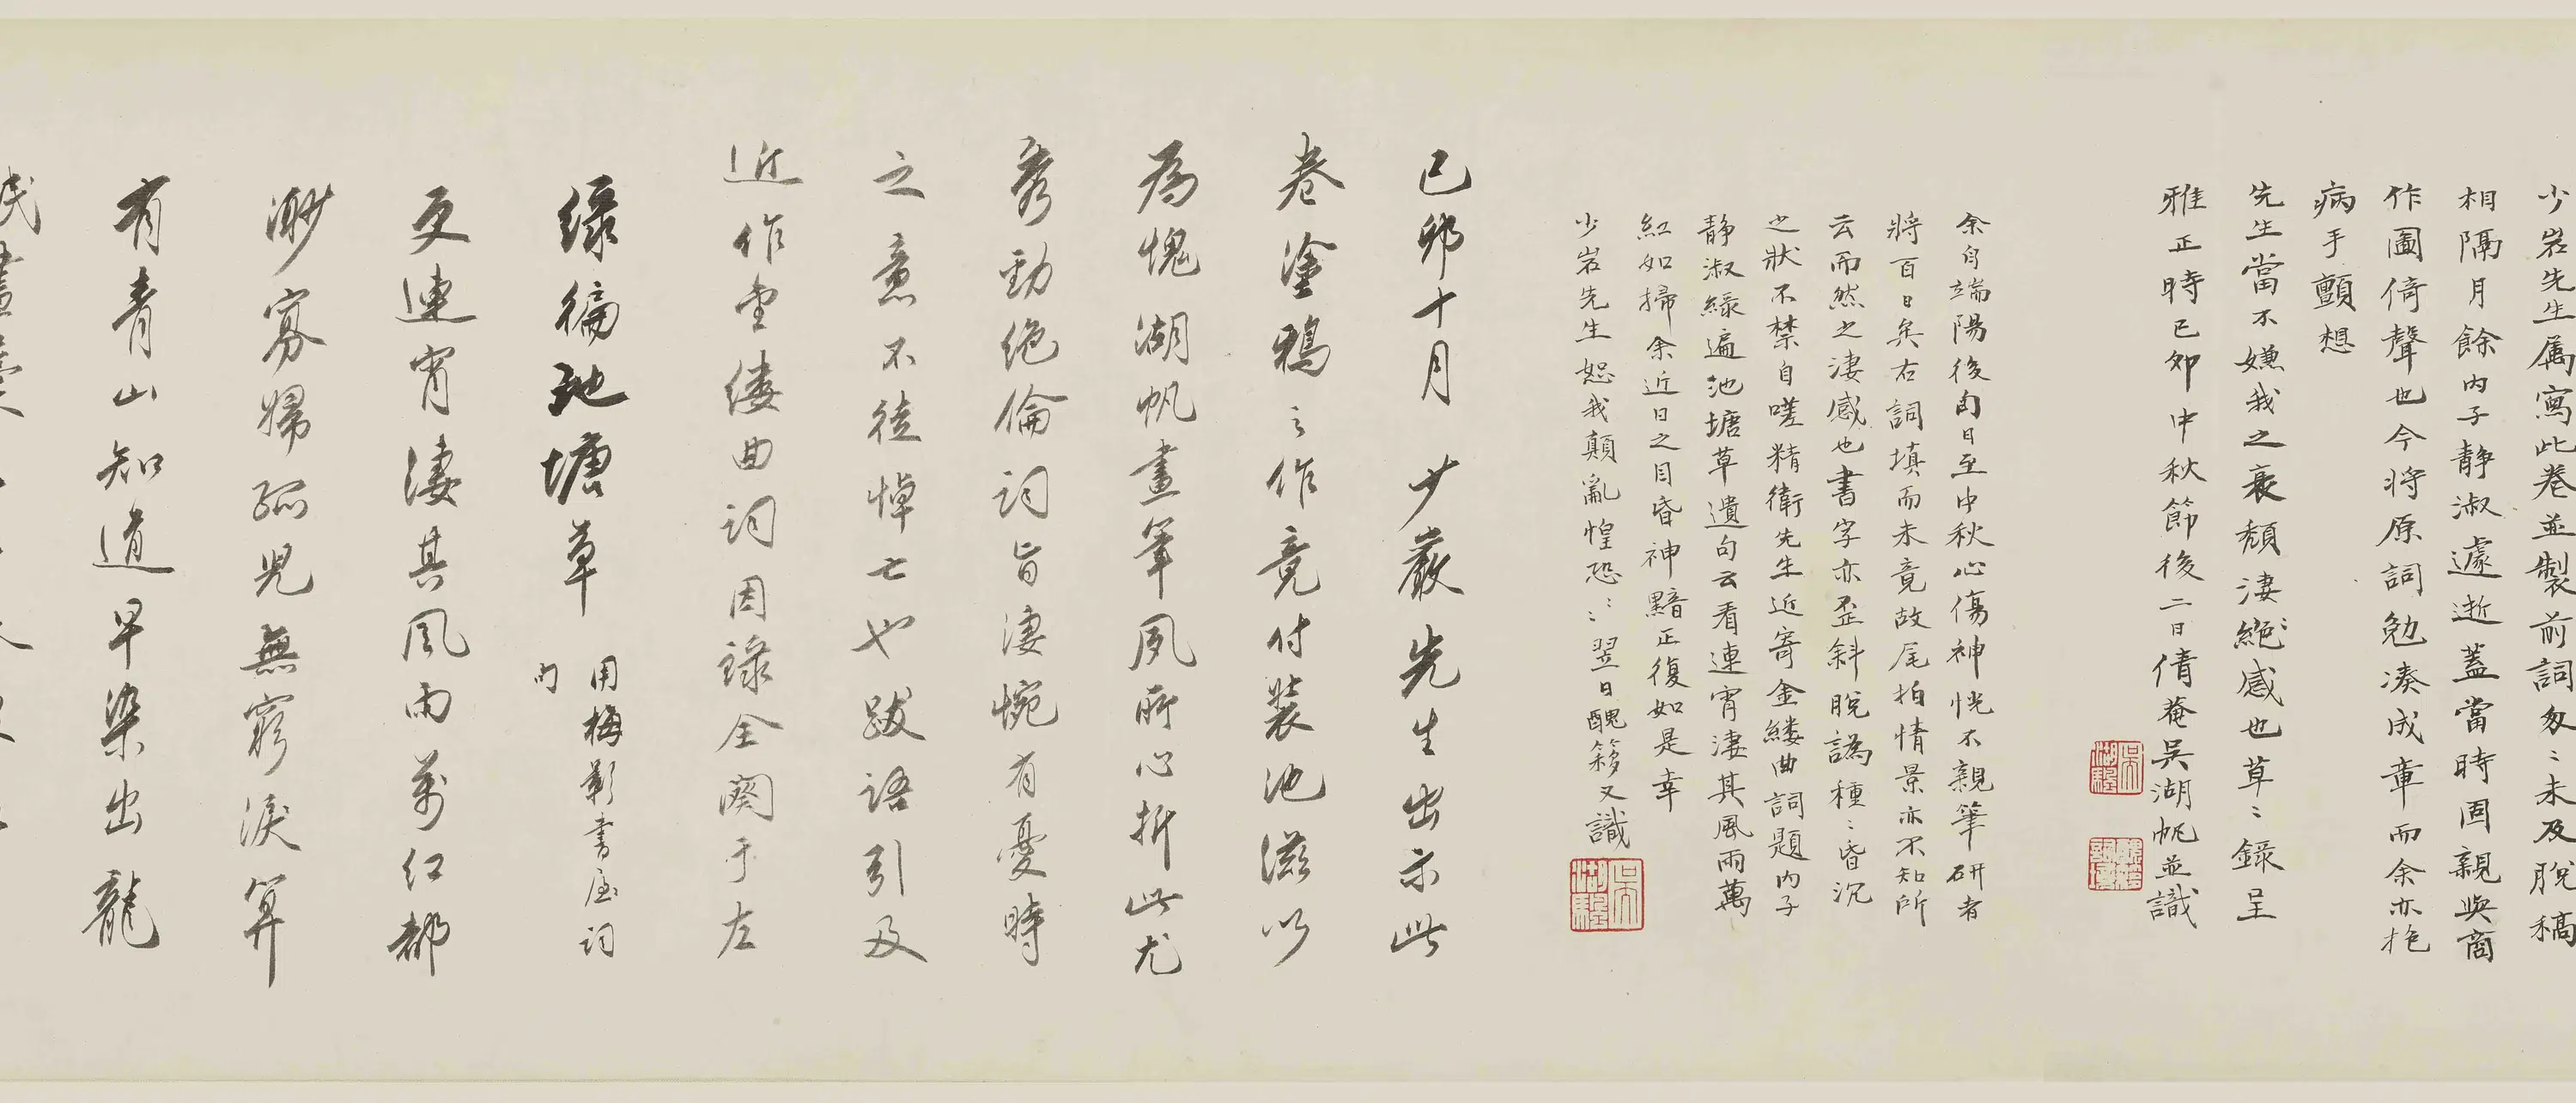 少岩先生属寫此卷並製前詞匆〻未及脫稿
相隔月餘內子靜淑遽逝蓋當時固親與商
作圖倚聲也今將原詞勉湊成章而余亦抱
病手顫想
先生當不嫌我之衰頹淒絕感也草〻錄呈
雅正時己卯中秋節後二日倩菴吳湖帆並識
余自端陽後旬日至中秋心傷神恍不親筆研者
將百日矣右詞填而未竟故尾拍情景亦不知所
云而然之淒感也書字亦歪斜脫譌種〻昏沉
之狀不禁自嗟精衛先生近寄金縷曲詞題內子
靜淑綠遍池塘草遺句云看連宵淒其風雨萬
紅如掃余近日之目昏神黯正復如是幸
少岩先生恕我顛亂惶恐〻〻翌日醜簃又識
己卯十月少巖先生出示此
卷塗鴉之作竟付裝池滋以
為愧湖帆畫筆夙所心折此尤
秀勁絕倫詞旨淒惋有憂時
之意不徒悼亡也跋語引及
近作金縷曲詞因錄全闋于左
綠徧池塘草 用梅影書屋詞
句
更連宵淒其風雨萬紅都
渺寡婦孤兒無窮淚算
有青山知道早染出龍